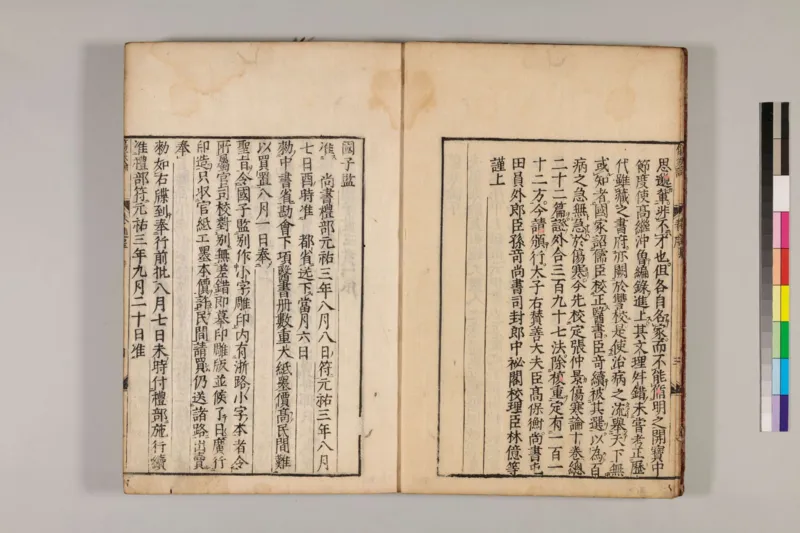 思邈輩非不才也但各自名家而不能脩明之開寶中
節度使高繼沖曽編錄進上其文理舛錯未嘗考正歷
代雖藏之書府亦闕於讐校是使治病之流舉天下無
或知者國家詔儒臣校正醫書臣奇續被其選以為百
病之急無急於傷寒今先校定張仲景傷寒論十卷總
二十二篇證外合三百九十七法除複重定有一百一
十二方今請頒行太子右贊善大夫臣高保衡尚書屯
田員外郎臣孫奇尚書司封郎中祕閣校理臣林億等
謹上
國子監
准　尚書禮部元祐三年八月八日符元祐三年八月
七日酉時准　都省送下當月六日
勑中書省勘會下項醫書冊數重大紙墨價高民間難
以買置八月一日奉
聖旨令國子監別作小字雕印內有浙路小字本者令
所屬官司校對別無差錯即摹印雕版並候了日廣行
印造只收官紙工墨本價許民間請買仍送諸路出賣
奉
勑如右牒到奉行前批八月七日未時付禮部施行續
准禮部符元祐三年九月二十日准